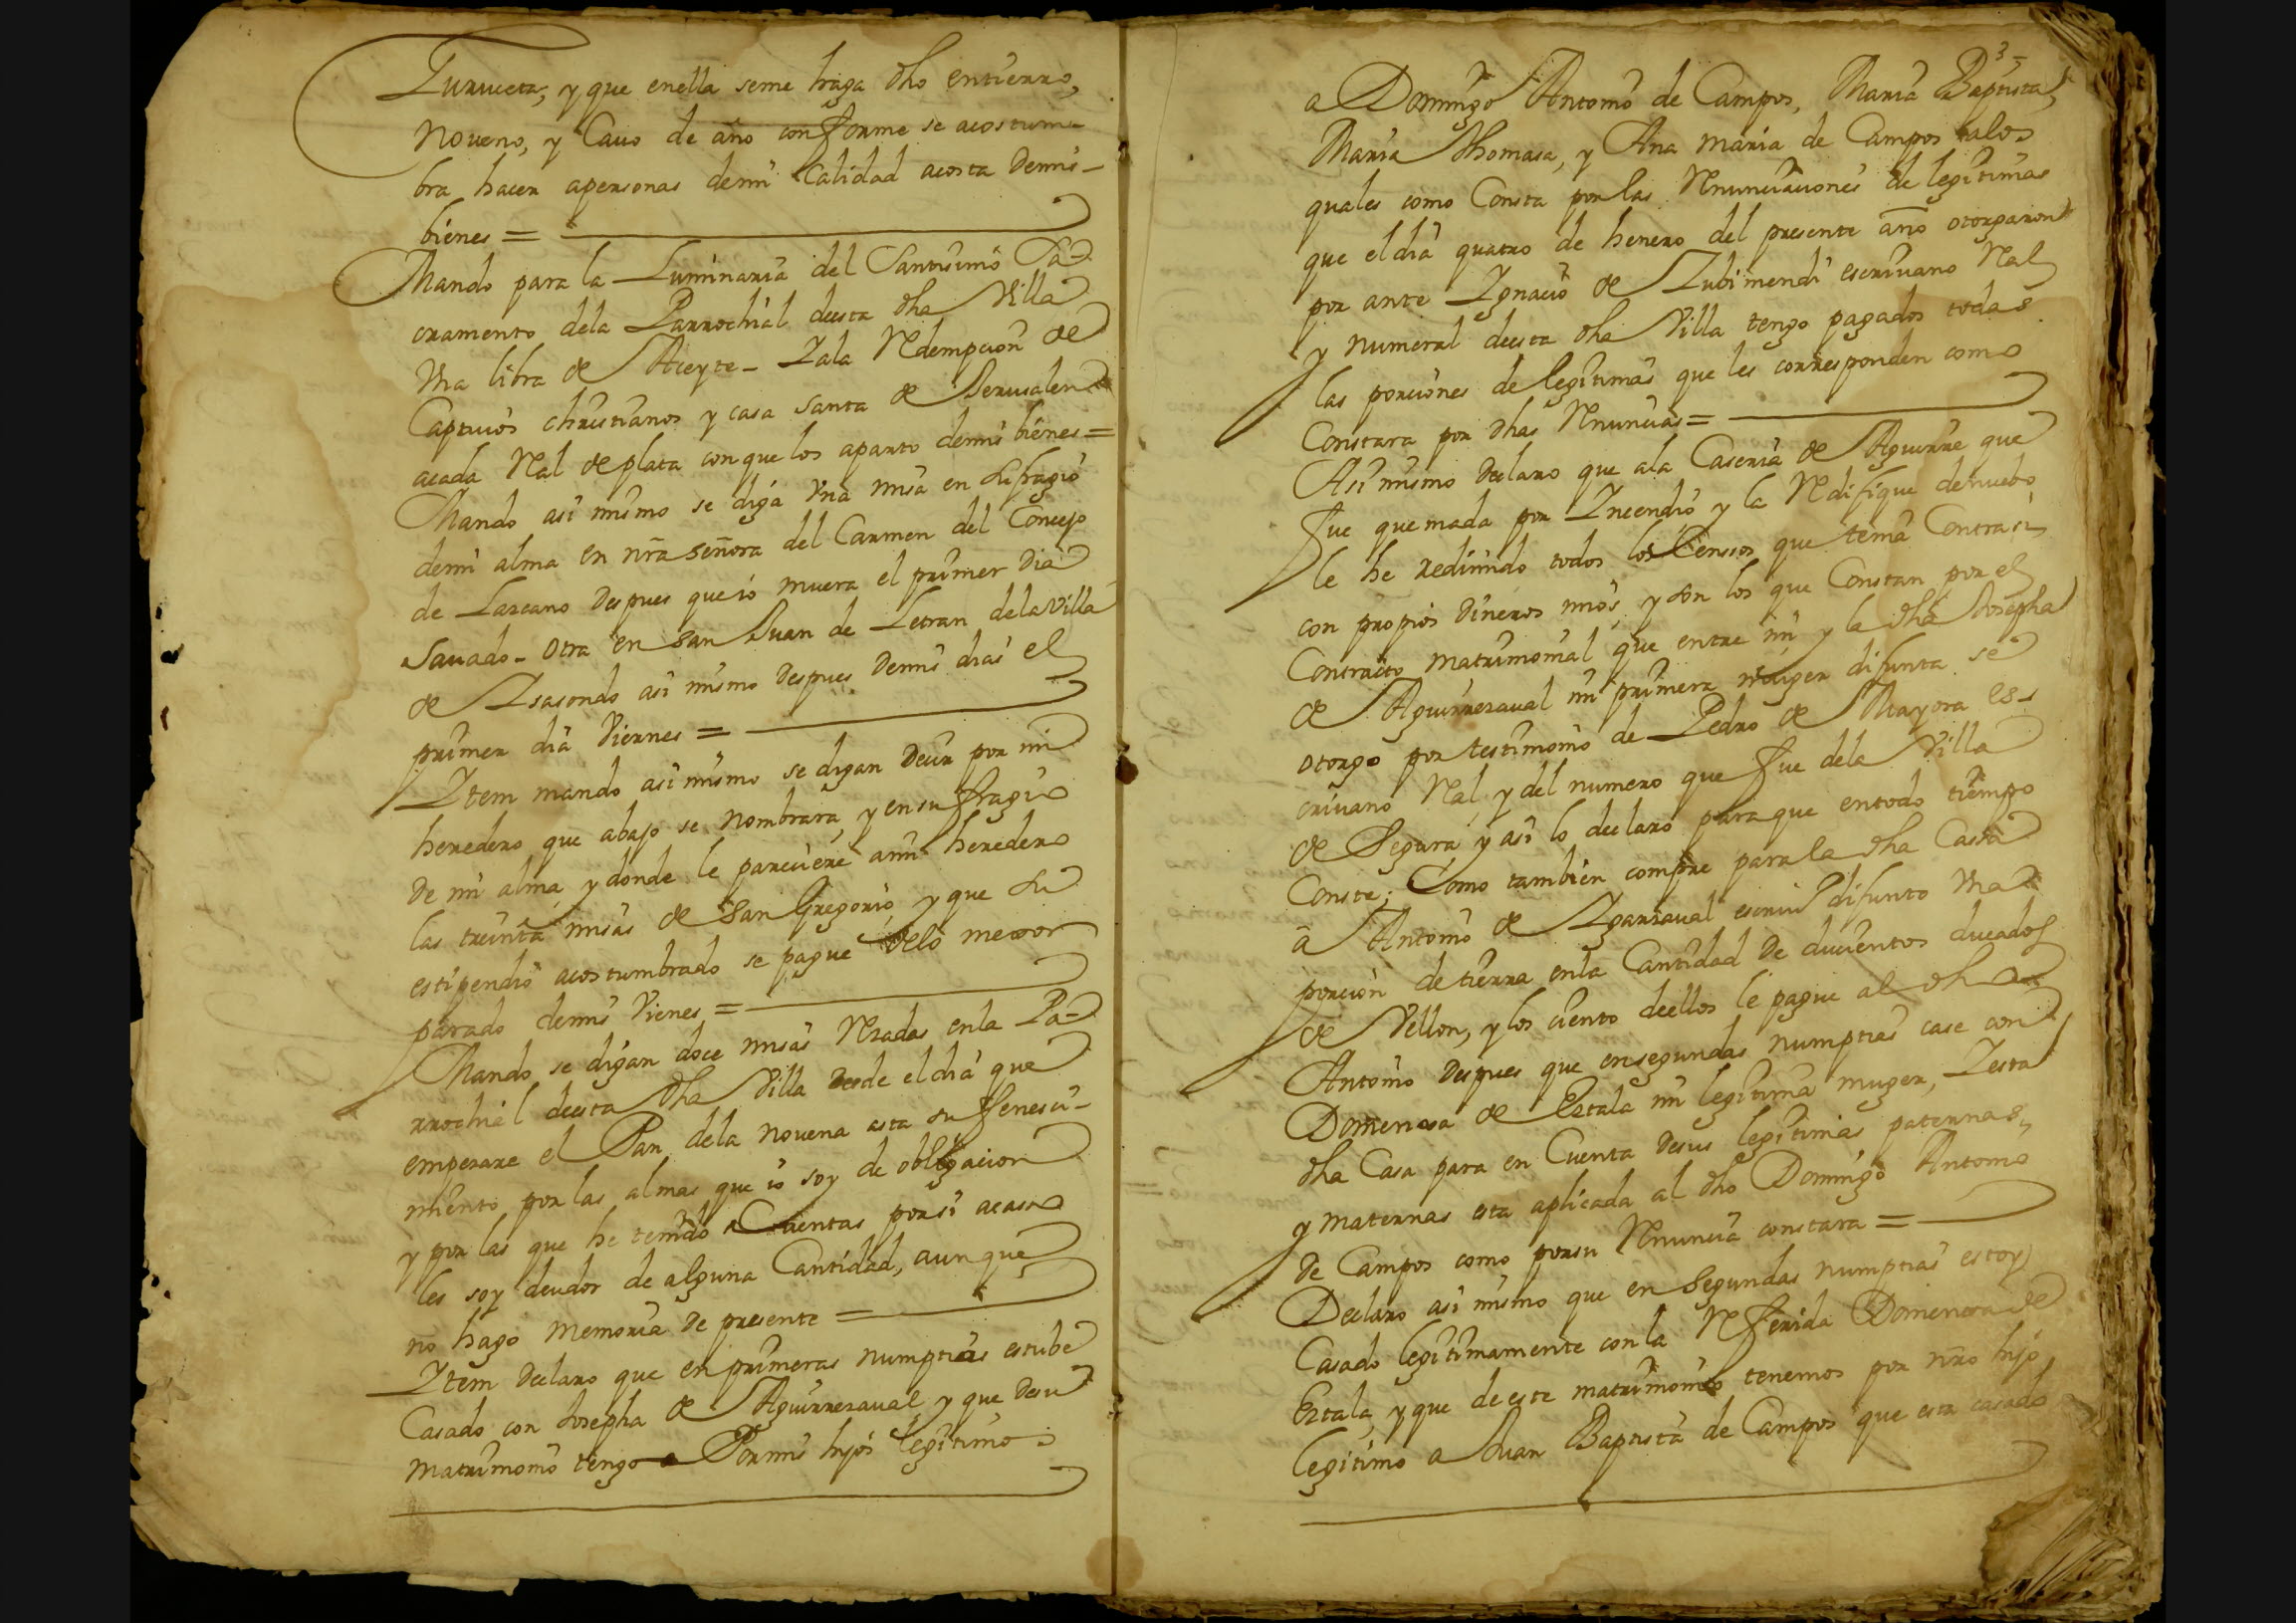 Zurruceta, y que enella seme haga dho entierro,
Noveno, y Cauo de año conforme se acostum-
bra hacer apersonas demi Calidad acosta demis-
bienes =
Mando para la Luminaria del Santisimo Sa-
cramento dela Parrochial deesta dha Villa
Vna libra de Aceyte - Yala Redempcion de
Captiuos christianos y casa santa de Jerusalen
acada Real de plata conque los aparto demis bienes =
Mando asi mismo se diga Vna misa en sufragio
demi alma en nra señora del Carmen del Concejo
de Lazcano despues que io muera el primer dia
Sauado - otra en San Juan de Letran dela villa
de Isasondo asi mismo despues demis dias el
primer dia Viernes =
Ytem mando asi mismo se digan decir por mi
heredero que abajo se nombrara, y en sufragio
de mi alma, y donde le pareciere ami heredero
las treinta misas de San Gregorio, y que su
estipendio acostumbrado se pague delo mexor
parado demis Vienes =
Mando se digan doce misas Rezadas enla Pa-
rrochial deesta dha Villa desde el dia que
empezare el Pan dela novena asta su fenesci-
miento por las almas que io soy de obligacion
y por las que he tenido Cuentas porsi acaso
les soy deudor de alguna Cantidad, aunque
no hago memoria de presente =
Ytem declaro que en primeras numptias estube
Casado con Josepha de Aguirrezaual y que desu
matrimonio tengo Por mis hijos legitimos
3
a Domingo Antonio de Campos, Maria Baptista,
Maria Thomasa, y Ana maria de Campos alos
quales como Consta por las Renunciaciones de legitimas
que el dia quatro de henero del presente año otorgaron
por ante Ygnacio de Zubimendi escriuano Real
y numeral deesta dha Villa tengo pagados todas
las porciones de legitimas que les corresponden como
Constara por dhas Renuncias =
Asi mismo declaro que ala Caseria de Aguirre que
fue quemada por Incendio y la Redifique denuebo
le he redimido todos los Censos que tenia Contrasi
con propios dineros mios, y son los que Constan por el
Contracto matrimonial que entre mi y la dha Josepha
de Aguirrezaual mi primera muger difunta se
otorgo por testimonio de Pedro de Mayora es-
criuano Real y del numero que fue dela Villa
de Segura, y asi lo declaro para que entodo tiempo
Conste; Como tambien compre para la dha Cassa
a Antonio de Ygarzaual escriuo difunto Vna
porcion de tierra enla Cantidad de ducientos ducados
de Vellon, y los ciento deellos le pague al dho
Antonio despues que ensegundas numptias case con
Domenssa de Eztala mi legitima muger, Yesta
dha Casa para en Cuenta desus legitimas paternas,
y maternas esta aplicada al dho Domingo Antonio
de Campos como porsu Renuncia constara =
Declaro asi mismo que en Segundas numptias estoy
Casado legitimamente con la Referida Domenssa de
Eztala, y que de este matrimonio tenemos por nro hijo
legitimo a Juan Baptista de Campos que esta casado